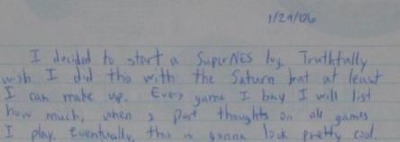 1/29/06
I decided to start a SuperNES log. Truthfully
wish I did tho with the Saturn but at least
I can make up. Every game I buy I will list
how much, when & post thoughts on all games
I play. Eventually, this is gonna look pretty cool.